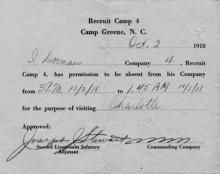 Recruit Camp 4
Camp Greene, N. C.
Oct. 2 1918
I. Dorman Company 4, Recruit
Camp 4, has permission to be absent from his Company
from 3 P.M. 10/2/18 to 1.45 AM
for the purpose of visiting Charlotte
Approved:
Joseph Stewart
Second Lieutenant Infantry Commanding Company
Adjutant